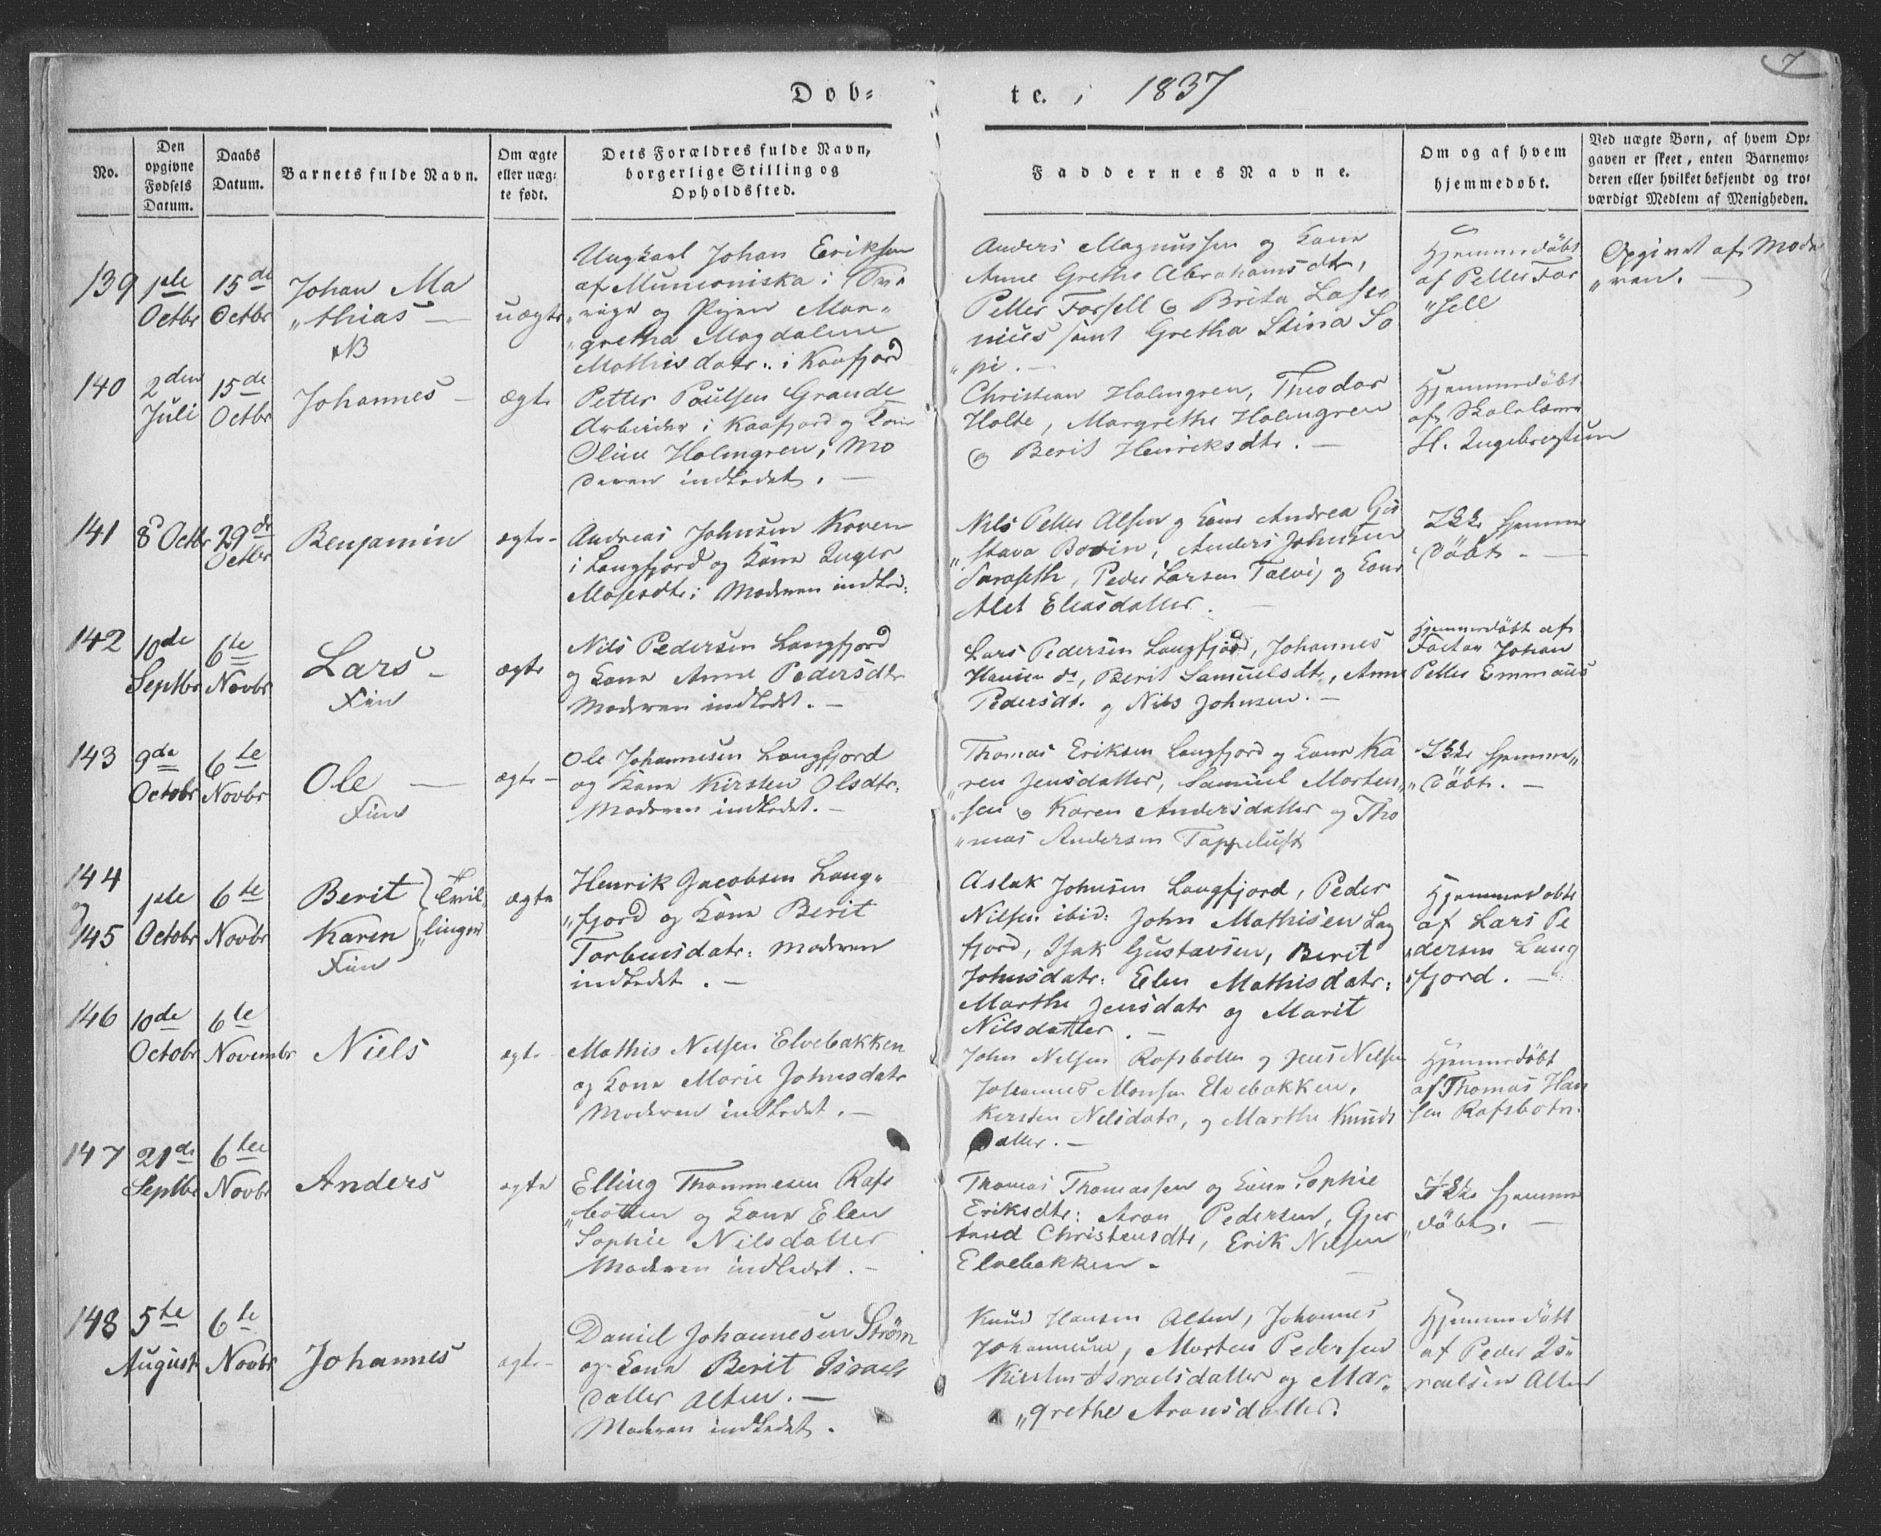 7
Døb- te. i 1837
No.
Den opgivne Fødsels Datum.
Daabs Datum.
Barnets fulde Navn.
Om ægte eller uæg-te født.
Dets Forældres fulde Navn, borgerlige Stilling og Opholdssted.
Faddernes Navne.
Om og af hvem hjemmedøbt.
Ved uægte Børn, af hvem Op-gaven er skeet, enten Barnemo-deren eller hvilket bekjendt og tro-værdigt Medlem af Menigheden.
139
1ste Octbr
15de Octbr
Johan Ma
"thias —
NB
uægte
Ungkarl Johan Eriksen
af Muonioniska i Sve
"rige og Pigen Mar-
"gretha Magdalena
Mathisdatr. i Kaafjord
Anders Magnussen og Kone
Anne Grethe Abrahamsdtr,
Petter Forsell og Brita Lasse
nius samt Gretha Stina So
"pi. —
Hjemmedøbt
af Petter For
"sell
Opgivet af Mode
"ren.
140
2den Juli
15de Octbr
Johannes —
ægte
Petter Poulsen Grande
Arbeider i Kaafjord og Kone
Oline Holmgren; Mo
deren indledet. —
Christian Holmgren, Theodor
Holte, Margrethe Holmgren
og Berit Henriksdtr. —
Hjemmedøbt
af Skolelærer
H. Ingebregtsen
141
8 Octbr
29de Octbr
Benjamin
ægte —
Andreas Johnsen Koven
i Langfjord og Kone Inger
Mosesdtr; Moderen indled:
Nils Petter Alsen og Kone Andrea Gu
"stava Bodin, Anders Johnsen
Saraseth, Peder Larsen Talvig og Kone
Alet Eliasdatter. —
Ikke hjemme
"døbt. —
142
10de Septbr
6te Novbr
Lars —
Fin
ægte
Nils Pedersen Langfjord
og Kone Anne Pedersdtr
Moderen indledet. —
Lars Pedersen Langfjord, Johannes
Hansen do, Berit Samuelsdtr, Anne
Pedersdt. og Nils Johnsen. —
Hjemmedøbt af
Factor Johan
Petter Emmaus
143
9de Octobr
6te Novbr
Ole —
Fin
ægte —
Ole Johannesen Langfjord
og Kone Kirsten Olsdtr.
Moderen indledet. —
Thomas Eriksen Langfjord og Kone Ka
"ren Jensdatter, Samuel Morten
"sen og Karen Andersdatter og Tho
"mas Andersen Tappeluft
Ikke hjemme"
"døbt. —
144
og
145
1ste Octobr
6te Novbr
Berit } Tvil
Karen } "linger
Fin
ægte
Henrik Jacobsen Lang"
"fjord og Kone Berit
Torbensdatr: Moderen
indledet. —
Aslak Johnsen Langfjord, Peder
Nilsen ibid: John Mathisen Lag
fjord, Isak Gustavsen, Berit
Johnsdatr: Elen Mathisdatr:
Marthe Jensdatr og Marit
Nilsdatter. —
Hjemmedøbte
af Lars Pe
"dersen Lang
"fjord. —
146
10de Octobr
6te Novembr
Niels
ægte
Mathis Nilsen Elvebakken
og Kone Marie Johnsdatr
Moderen indledet. —
John Nilsen Rafsbotten og Jens Nilsen
Johannes Monsen Elvebakken,
Kersten Nilsdatr, og Marthe Knuds
datter. —
Hjemmedøbt
af Thomas Han
sen Rafsbotn.
147
21de Septbr
6te Novbr
Anders
ægte
Elling Thommesen Rafs
"botten og Kone Elen
Sophie Nilsdatter
Moderen indledet. —
Thomas Thomassen og Kone Sophie
Eriksdtr: Aron Pedersen, Gjer
trud Christensdtr, Erik Nilsen
Elvebakken. —
Ikke hjemme
"døbt. —
148
5te August
6te Novbr
Johannes
ægte —
Daniel Johannesen Strøm
og Kone Berit Israels
datter Alten. —
Moderen indledet.
Knud Hansen Alten, Johannes
Johannesen, Morten Pedersen
Kirsten Israelsdatter og Mar-
"grethe Aronsdatter.
Hjemmedøbt
af Peder Is"
raelsen Alten